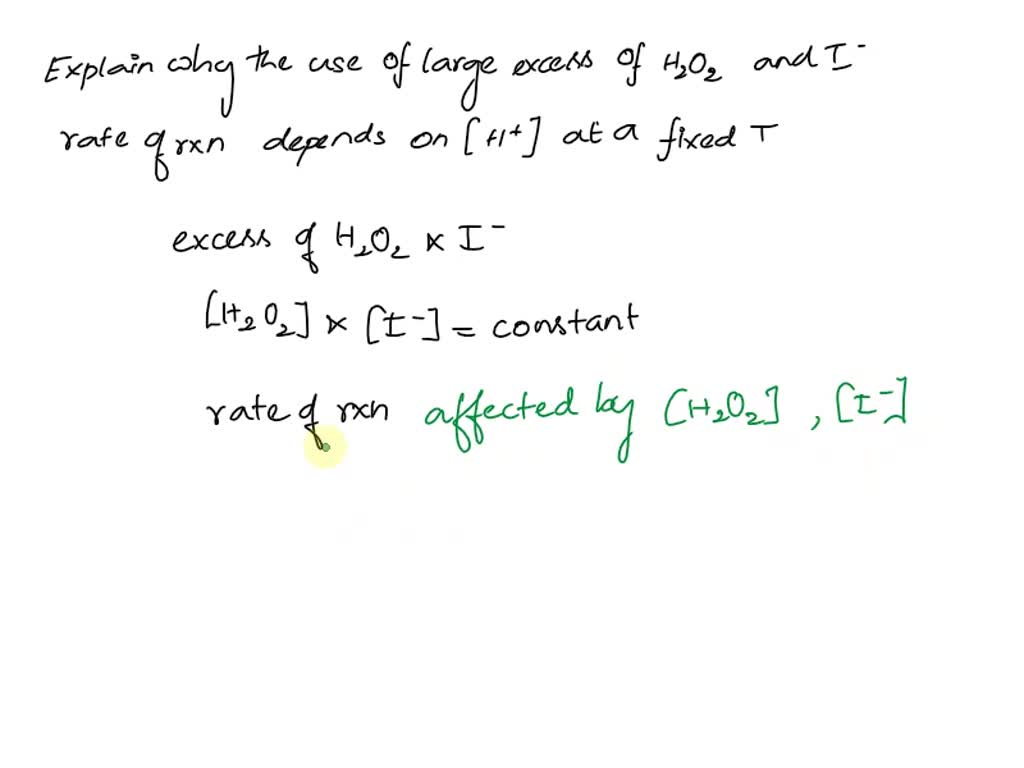 Explain why the use of large excess of H₂O₂ and I⁻
rate of rxn depends on [H⁺] at a fixed T
excess of H₂O₂ & I⁻
[H₂O₂] & [I⁻] = constant
rate of rxn affected by [H₂O₂], [I⁻]